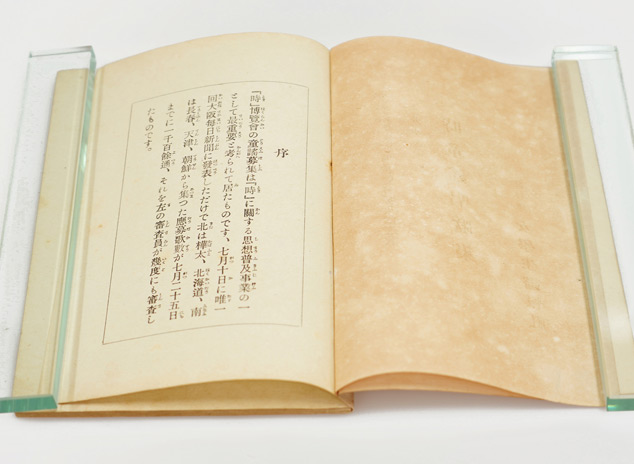 序
『時』博覽會の童謠募集は『時』に關する思想普及事業の一
として最重要と考られて居たものです、七月十日に唯一
回大阪每日新聞に發表しただけで北は樺太、北海道、南
は長春、天津、朝鮮から集つた應募歌數が七月二十五日
までに一千百餘通、それを左の審査員が幾度にも審査し
たものです。